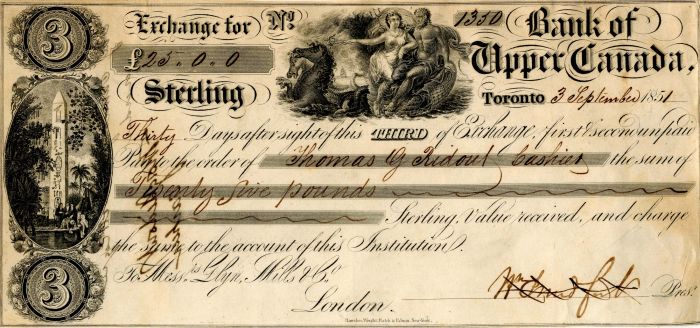 3
Exchange for No. 1350 Bank of
£25.0.0 Upper Canada,
Sterling Toronto 3 September 1851
Thirty Days after sight of this THIRD of Exchange, first & second unpaid
Pay to the order of Thomas G Ridout Cashier the sum of
Twenty five pounds
Sterling, Value received, and charge
the same to the account of this Institution.
To Messrs. Glyn, Mills & Co.
London. Pres.
3
Rawdon, Wright, Hatch & Edson, New-York.